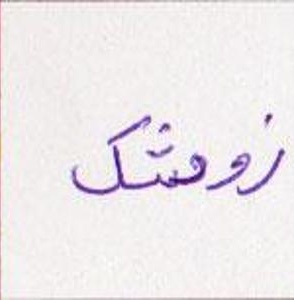 زومشک